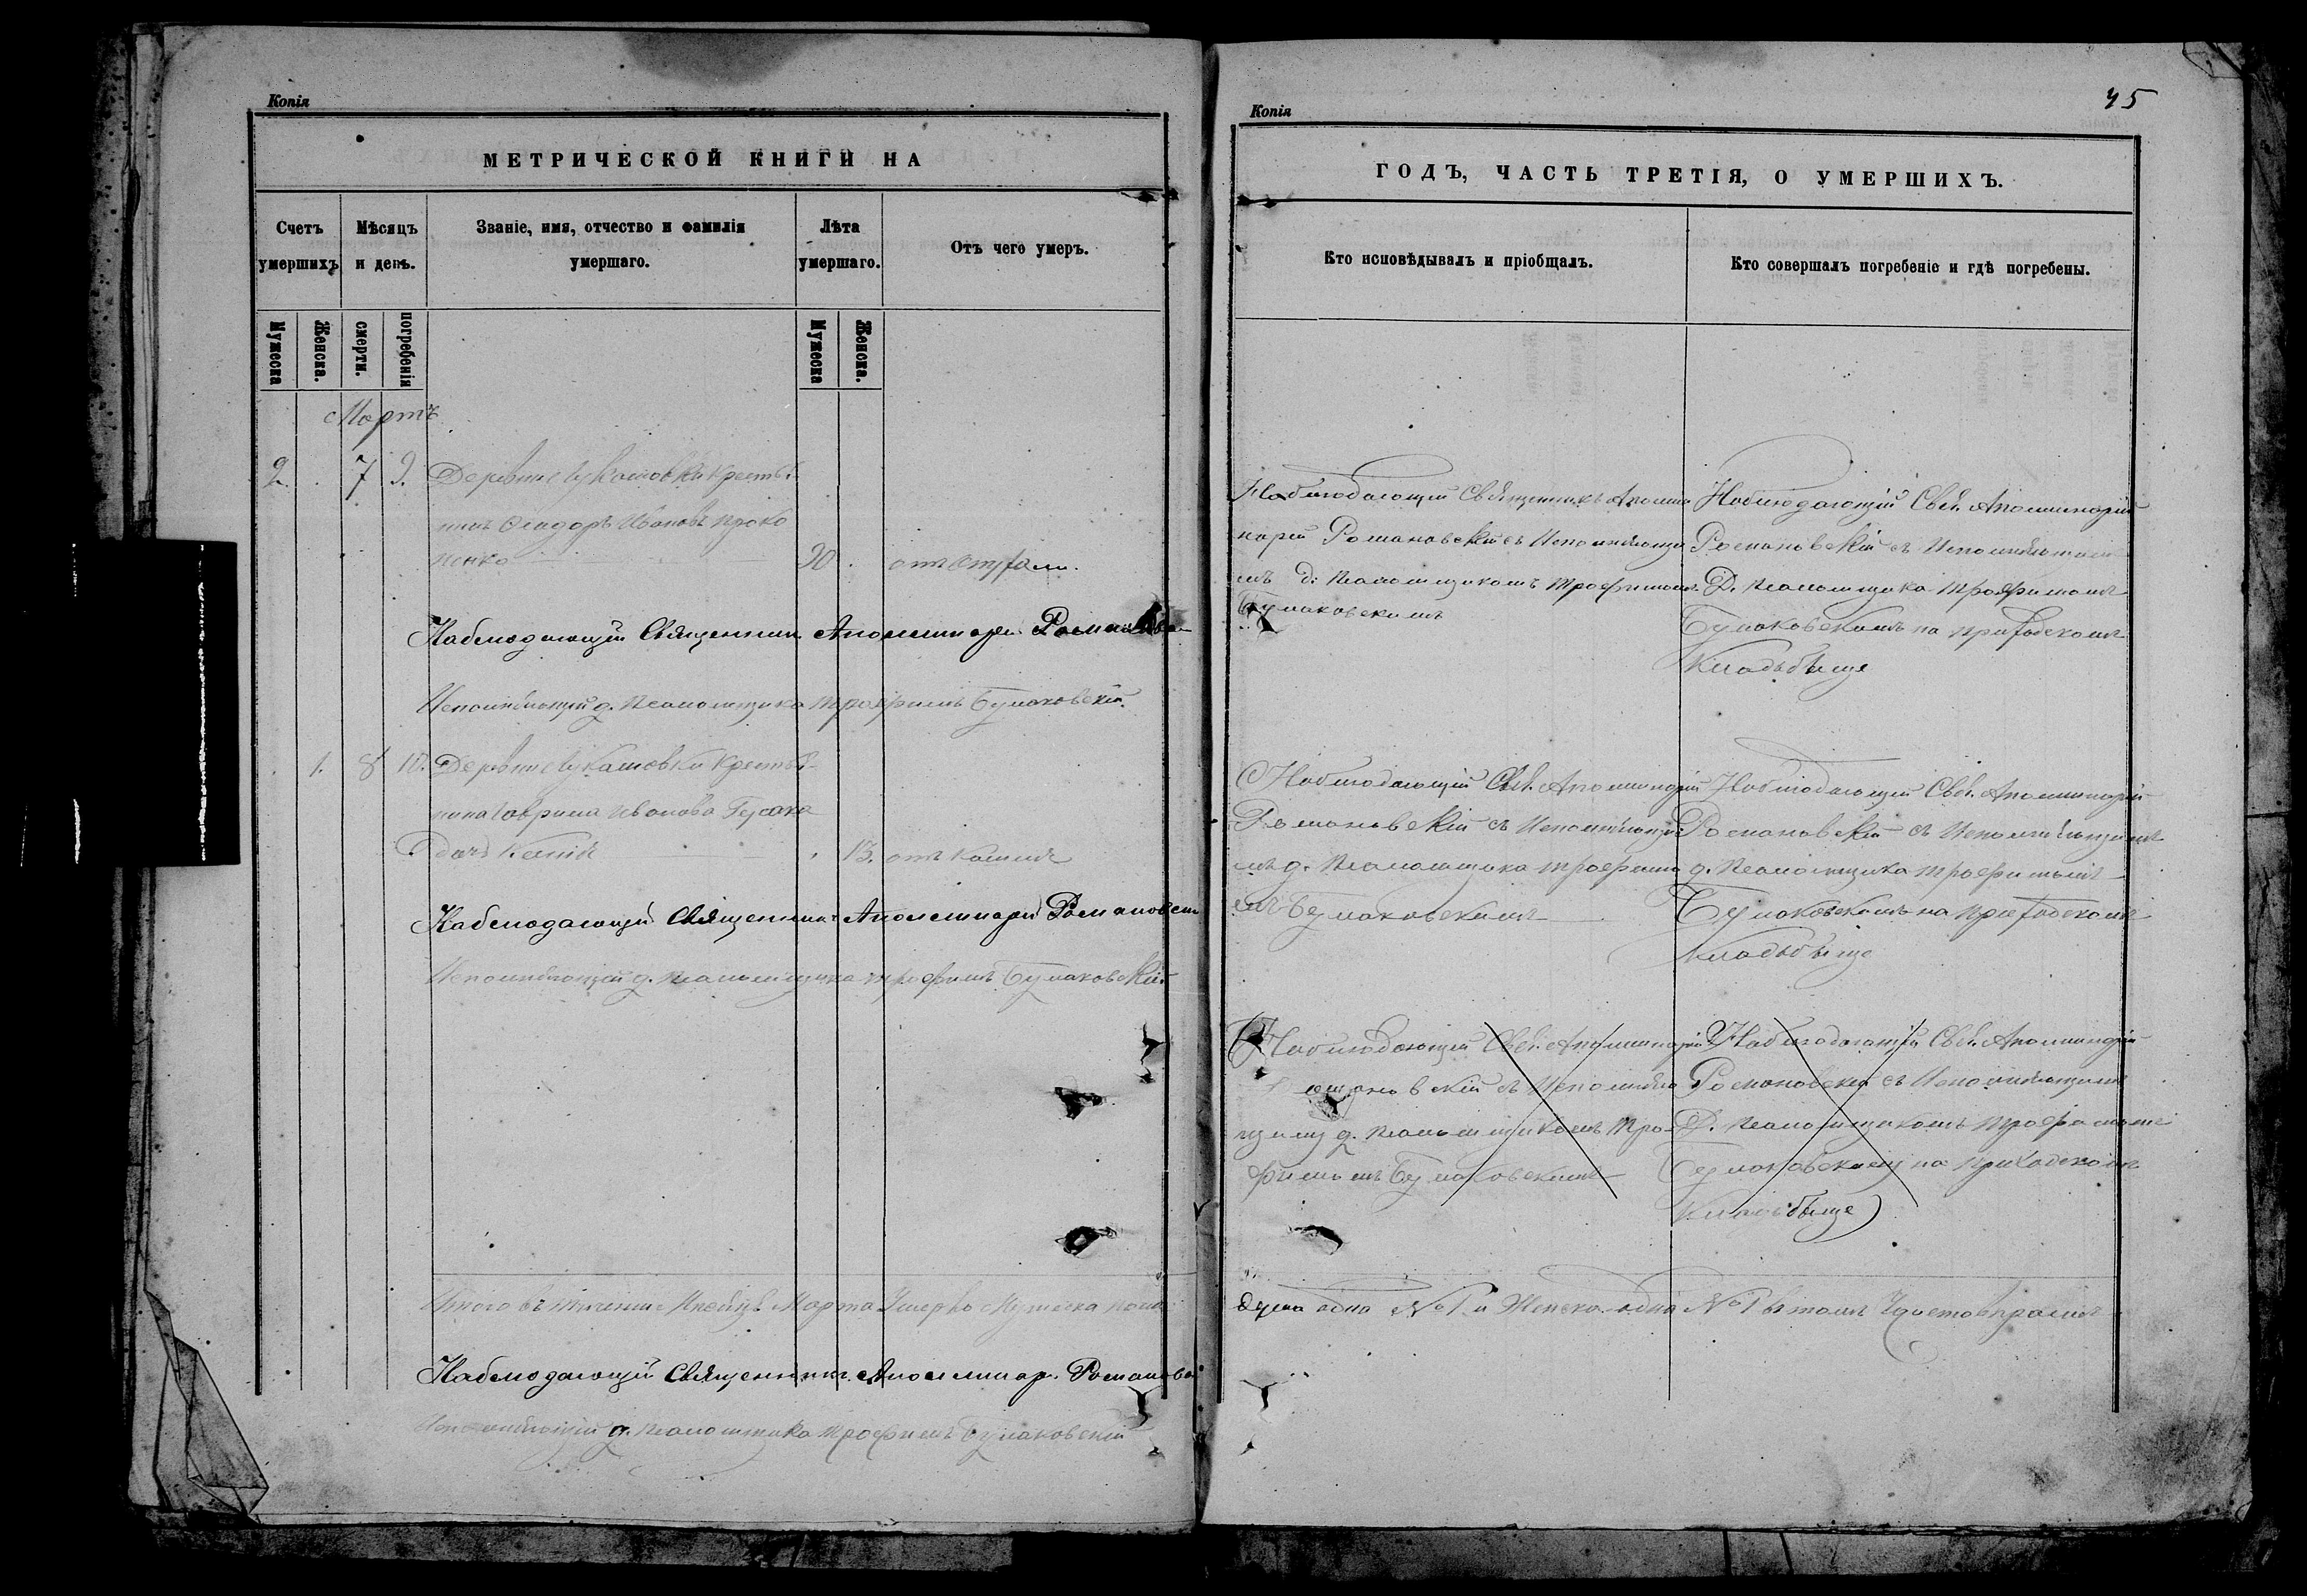 Копія
МЕТРИЧЕСКОЙ КНИГИ НА
Счетъ умершихъ
Мѣсяцъ и день.
Званіе, имя, отчество и фамилія умершаго.
Лѣта умершаго.
Отъ чего умеръ.
Мужеска
Женска.
смерти.
погребенія
Мужеска
Женска.
Мартъ
2. 7 9. Деревни Лукашовки крестья
нинъ Ѳеодоръ Ивановъ Проко
пенко 90
Наблюдающій Священникъ Аполлинарій Романовскій
Исполняющій д. Псаломщика Трофимъ Булаковскій
1. 8 10. Деревни Лукашовки крестья
нина Гаврила Иванова Гусака
дочь 13. отъ кашля
Наблюдающій Священникъ Аполлинарій Романовскій
Исполняющій д. Псаломщика Трофимъ Булаковскій
Итого въ теченіе Мѣсяцѣ Марта Умерло Мужеска пола
Наблюдающій Священникъ Аполлинар. Романовскій
Исполняющій д. Псаломщика Трофимъ Булаковскій
Копія
45
ГОДЪ, ЧАСТЬ ТРЕТІЯ, О УМЕРШИХЪ.
Кто исповѣдывалъ и пріобщалъ.
Кто совершалъ погребеніе и гдѣ погребены.
Наблюдающій Священникъ Аполли
нарій Романовскій съ Исполняющи
мъ д. Псаломщикомъ Трофимом.
Булаковскимъ
Наблюдающій Свящ. Аполлинарій
Романовскій съ Исполняющим
Д. Псаломщика Трофимомъ
Булаковскимъ на приходскомъ
Кладьбище
Наблюдающій Свящ. Аполлинарій
Романовскій съ Исполняющи
мъ д. Псаломщика Трофимо
мъ Булаковскимъ
Наблюдающій Свящ. Аполлинарій
Романовскій съ Исполняющимъ
д. Псаломщика Трофимомъ
Булаковскимъ на приходскомъ
Кладьбище
(Наблюдающій Свящ. Аполлинарій
Романовскій съ Исполняю
щимъ д. Псаломщикомъ Тро-
фимомъ Булаковскимъ
Наблюдающій Свящ. Аполлинарій
Романовскій съ Исполняющим
Д. Псаломщикомъ Трофимомъ
Булаковскимъ на приходскомъ
Кладьбище)
душа одна № 1 и Женска одна № 1 въ томъ Удостовѣряемъ